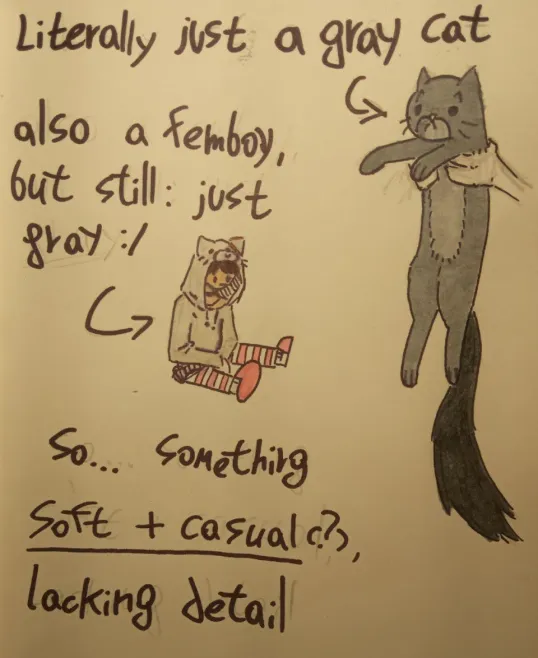 Literally just a gray cat
also a femboy,
but still: just
gray :/
So... something
soft + casual (?),
lacking detail